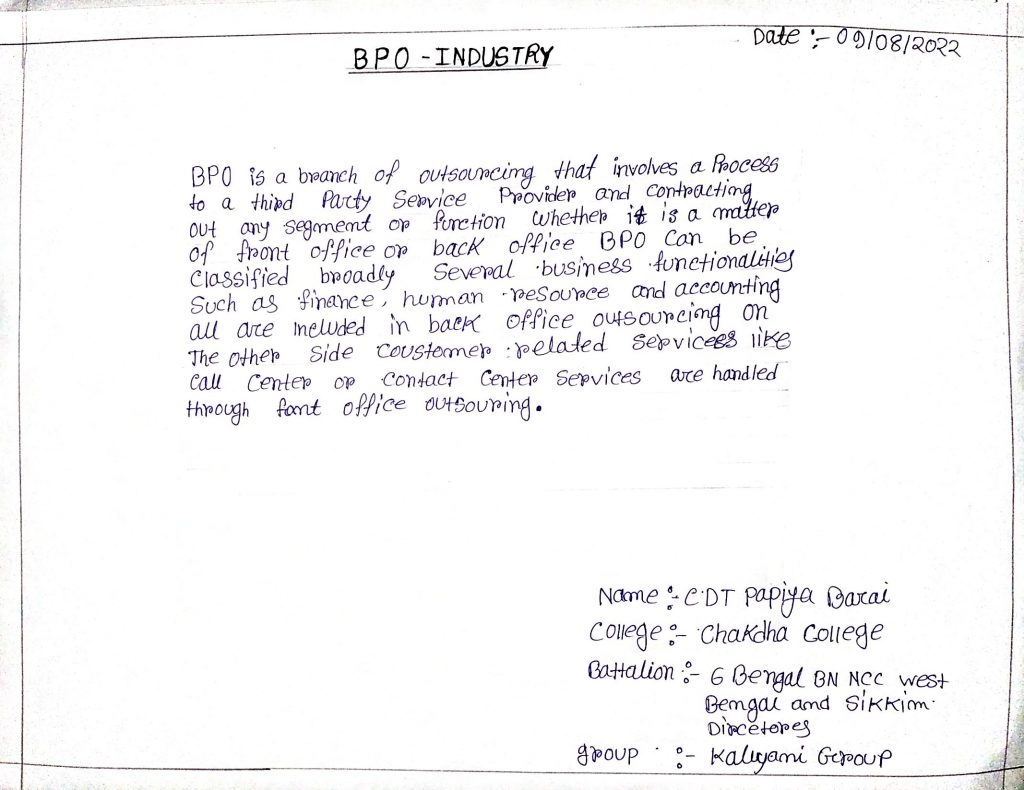 Date :- 09/08/2022
BPO - INDUSTRY
BPO is a branch of outsourcing that involves a Process
to a third Party Service Provider and contracting
out any segment or function whether it is a matter
of front office or back office BPO can be
classified broadly several business functionalities
such as finance, human resource and accounting
all are included in back office outsourcing on
The other side coustomer related servicees like
call center or contact center services are handled
through font office outsouring.
Name :- CDT Papiya Barai
College :- Chakdha College
Battalion :- 6 Bengal BN NCC west
Bemgal and Sikkim.
Dircetores
group :- Kalyani Group